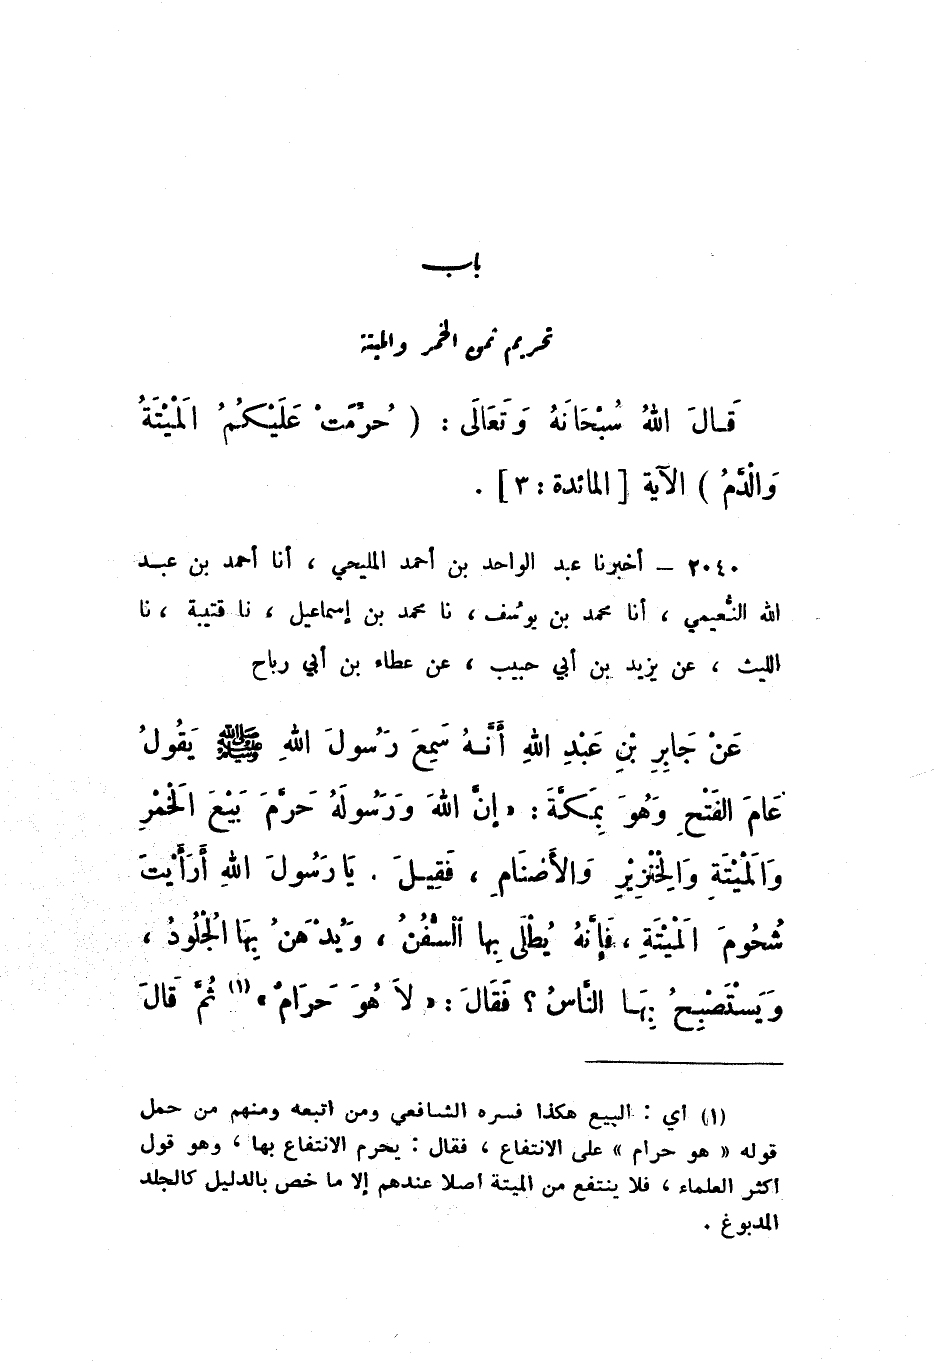 باب
تحريم ثمن الخمر والميتة
قَالَ اللهُ سُبْحَانَهُ وَتَعَالَى : ( حُرِّمَتْ عَلَيْكُمُ المَيْتَةُ
وَالْدَّمُ ) الآية [ المائدة : ٣ ] .
٢٠٤٠ ـ أخبرنا عبد الواحد بن أحمد المليحي ، أنا أحمد بن عبد
الله النُّعيمي ، أنا محمد بن يوسُف ، نا محمد بن إسماعيل ، نا قتيبة ، نا
الليث ، عن يزيد بن أبي حبيب ، عن عطاء بن أبي رباح
عَنْ جَابِرِ بْنِ عَبْدِ اللهِ أَنَّهُ سَمِعَ رَسُولَ اللهِ ﷺ يَقُولُ
عَامَ الفَتْحِ وَهُوَ بِمَكَّةَ : « إنَّ اللهَ وَرَسُولَهُ حَرَّمَ بَيْعَ الخَمْرِ
وَالمَيْتَةِ وَالخِنْزِيْرِ وَالأَصْنَامِ ، فَقِيلَ . يَا رَسُولَ اللهِ أَرَأَيْتَ
شُحُومَ المَيْتَةِ ، فَإِنَّهُ يُطْلَى بِها السُّفُنُ ، وَيُدْهَنُ بِهَا الجُلُودُ ،
وَيَسْتَصْبِحُ بِهَا النَّاسُ ؟ فَقَالَ : « لاَ هُوَ حَرامٌ » (١) ثُمَّ قَالَ
(١) أي : البيع هكذا فسره الشافعي ومن اتبعه ومنهم من حمل
قوله « هو حرام » على الانتفاع ، فقال : يحرم الانتفاع بها ، وهو قول
أكثر العلماء ، فلا ينتفع من الميتة أصلا عندهم إلا ما خص بالدليل كالجلد
المدبوغ .